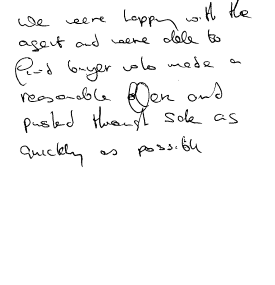 We were happy with the
agent and were able to
find buyer who made a
reasonable offer and
pushed through sale as
quickly as possible